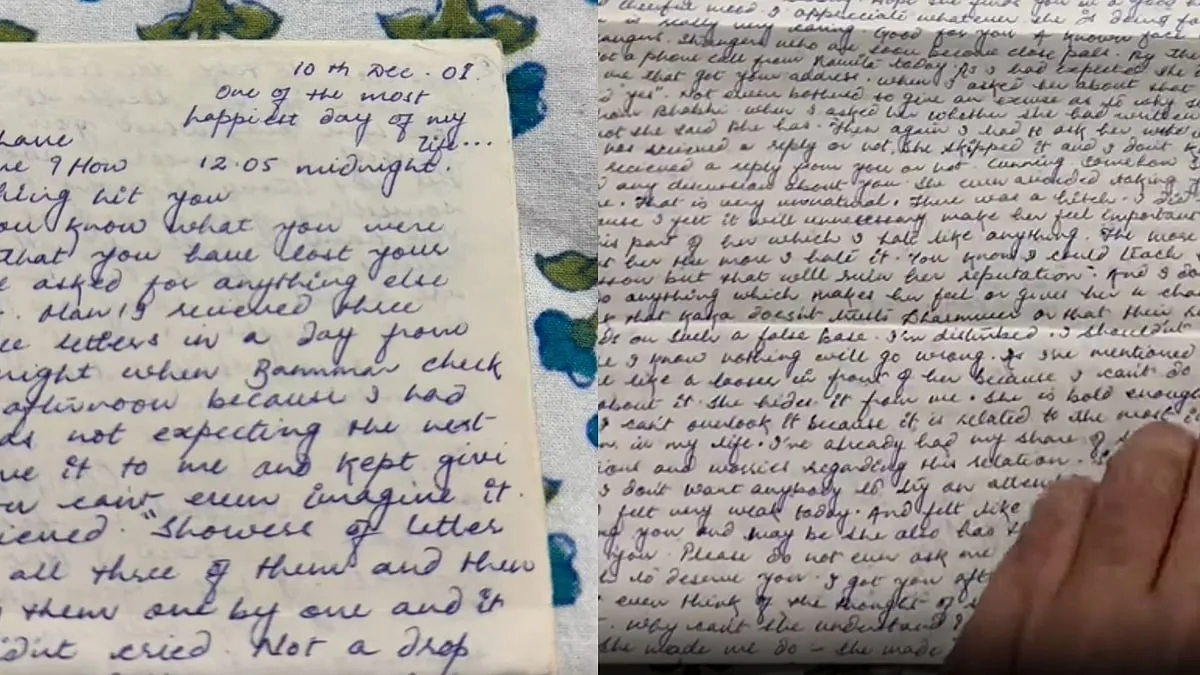 10th Dec. 01.
One of the most
happiest day of my
life...
12.05 midnight.
ne ? How
hing hit you
ou know what you were
that you have lost your
e asked for anything else
. Man I recieved three
ee letters in a day from
night when Bamman check
afternoon because I had
as not expecting the next
ve it to me and kept givi
ou can't even imagine it.
ieved. "Showers of letter
all three of them and then
them one by one and it
didn't cried. Not a drop
cheerful mood. I appreciate whatever she is doing for
is really very caring. Good for you. A known face
strangers. Strangers who are soon become close pals. By the
got a phone call from today. As I had expected she
me that got your address. When I asked her about that
"yes". Not even bothered to give an excuse as to why s
when I asked her whether she had written
not she said she has. Then again I had to ask her
has recieved a reply or not. She skipped it and I don't k
recieved a reply from you or not. Cunning. Somehow
any discussion about you. She even avoided taking
e. That is very unnatural. There was a hitch. I did
ause I felt it will unnecessary make her feel important
his part of her which I hate like anything. The more
her the more I hate it. You know I could teach
but that will ruin her reputation. And I do
anything which makes her feel or gives her a cha
that doesn't or that their
on such a false base. I'm disturbed. I shouldn't
I know nothing will go wrong. she mentioned
like a looser in front of her because I can't do
about it. She hides it from me. She is bold enough
I can't overlook it because it is related to the most
in my life. I've already had my share of
ions and worries regarding this relation.
I don't want anybody to try an attem
I felt very weak today. And felt like
ng you and may be she also had
you. Please do not ever ask me
to deserve you. I got you aft
even think of the thought of
. Why can't she understand
She made me do - she made